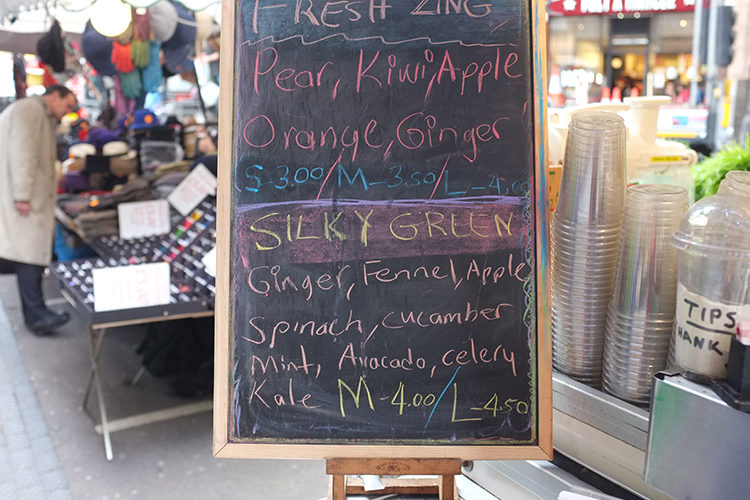 FRESH ZING
Pear, Kiwi, Apple
Orange, Ginger
S-3.00/M-3.50/L-4.00
SILKY GREEN
Ginger, Fennel, Apple
Spinach, cucamber
Mint, Avacado, celery
Kale M-4.00/L-4.50
TIPS